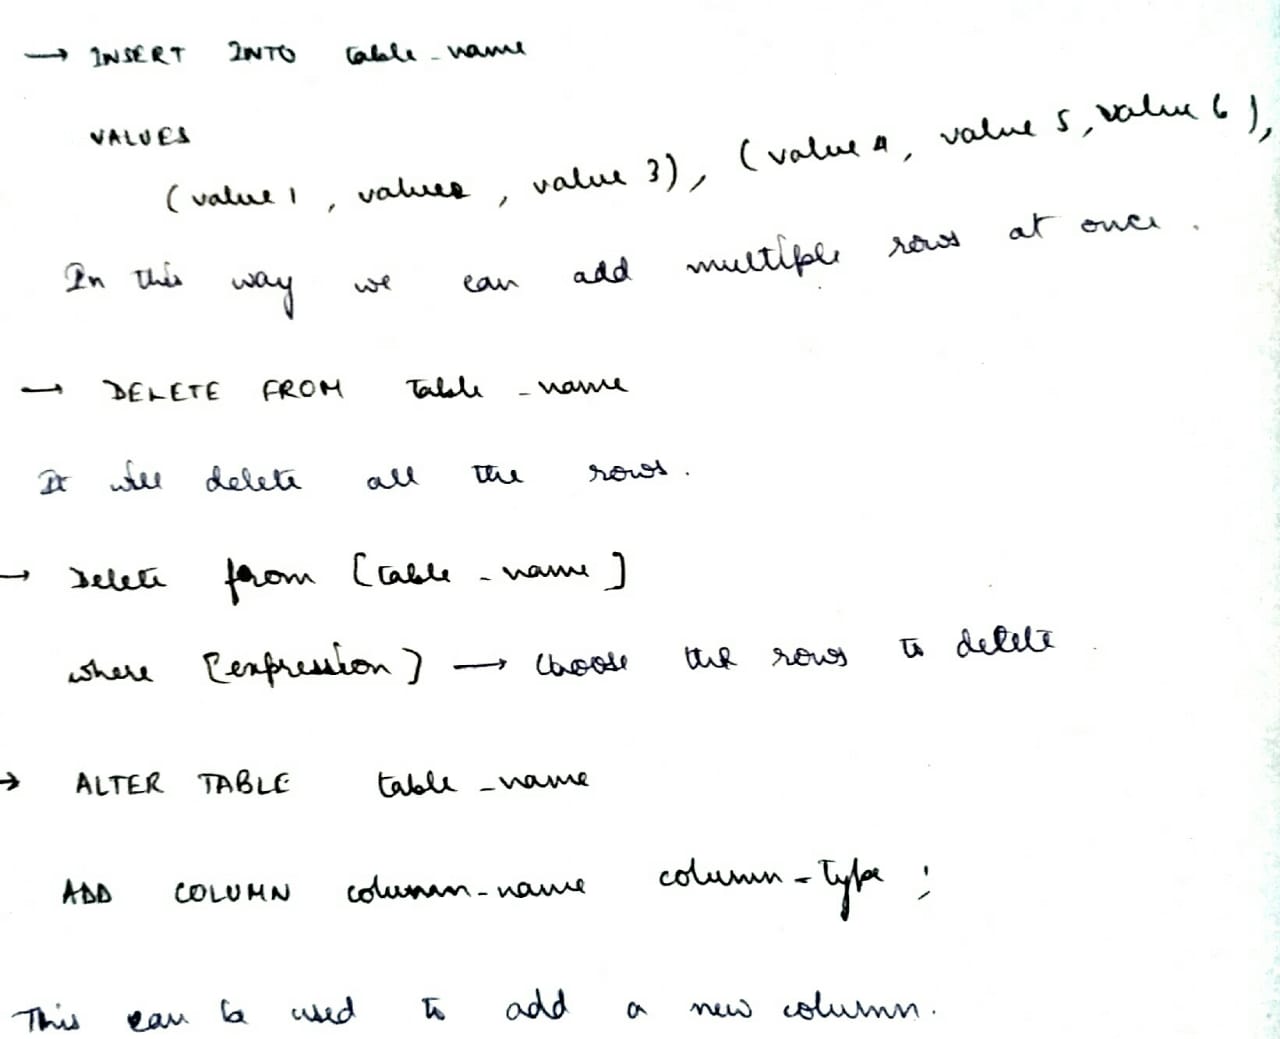 → INSERT INTO table_name
VALUES
(value 1, value2, value 3), (value 4, value 5, value 6),
In this way we can add multiple rows at once.
→ DELETE FROM table_name
It will delete all the rows.
→ Delete from [table_name]
where [expression] → Choose the rows to delete.
→ ALTER TABLE table_name
ADD COLUMN column_name column-type ;
This can be used to add a new column.